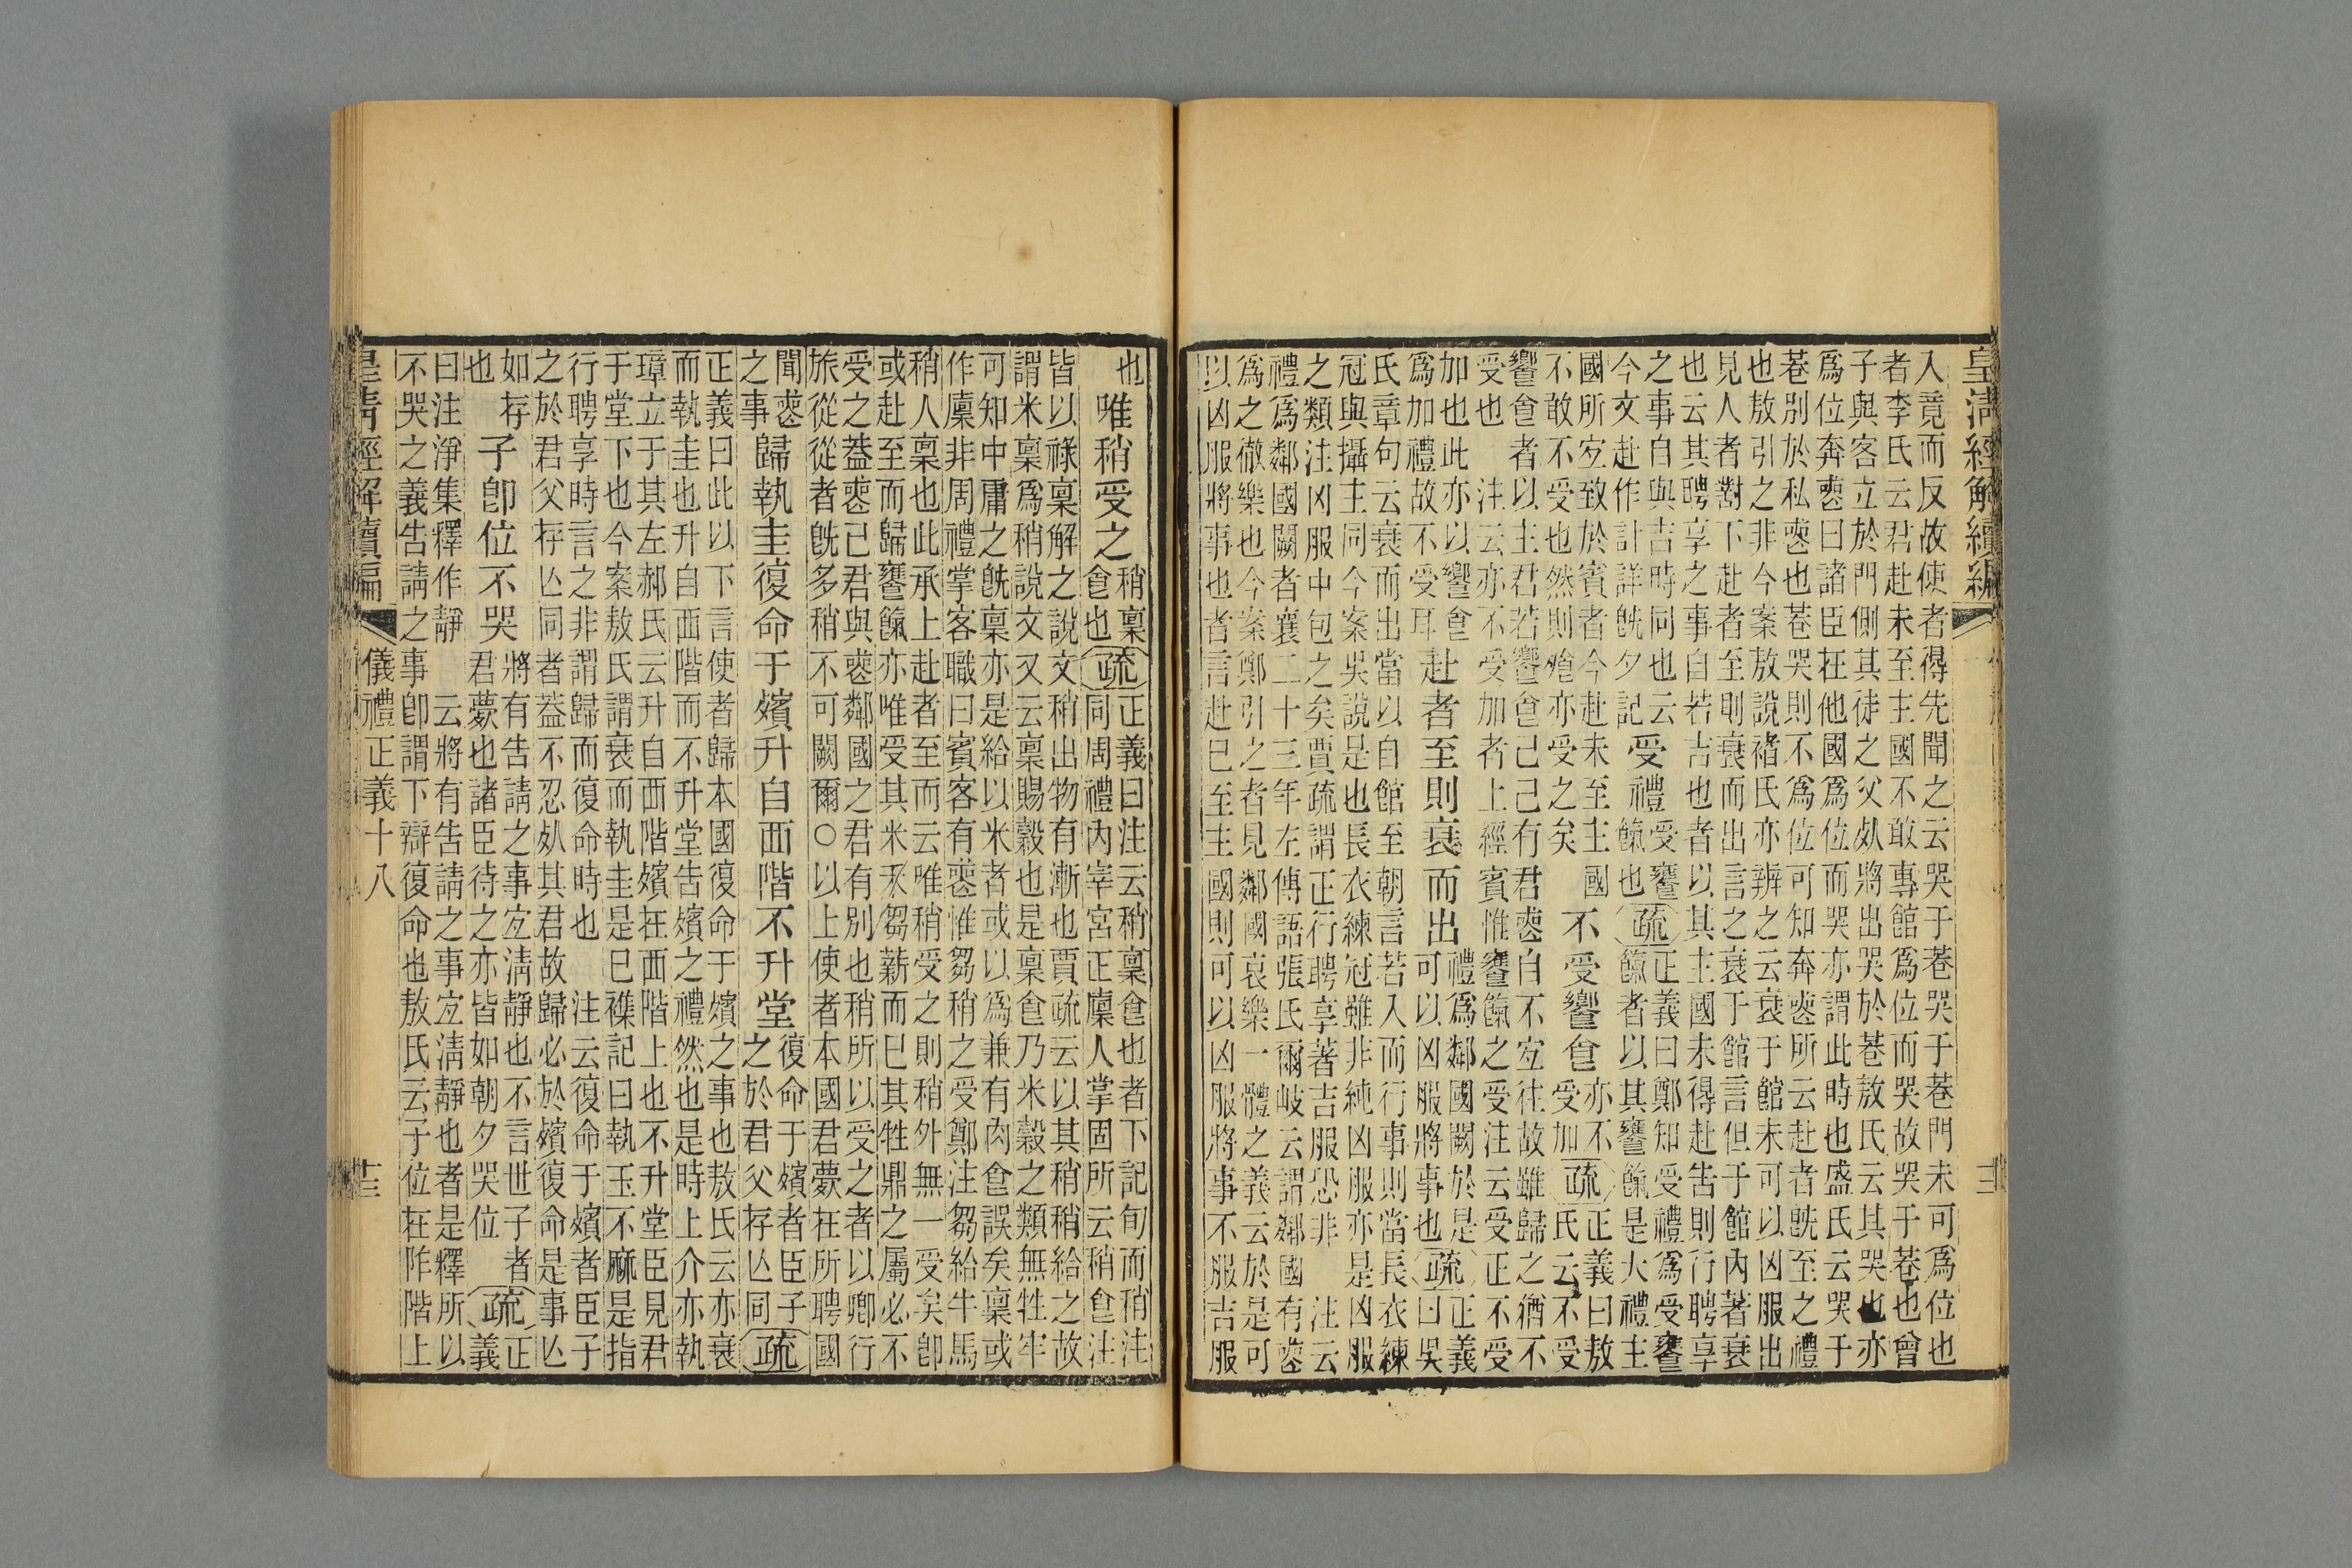 皇清經解續編
入竟而反故使者得先聞之云哭于巷哭于巷門未可爲位也
者李氏云君赴未至主國不敢事館爲位而哭故哭于巷也曾
子與客立於門側其徒之父死將出哭於巷敖氏云其哭也亦
爲位奔喪曰諸臣在他國爲位而哭亦謂此時也盛氏云哭于
巷別於私喪也巷哭則不爲位可知奔喪所云赴者旣至之禮
也敖引之非今案敖說褚氏亦辨之云衰于館未可以凶服出
見人者對下赴者至則衰而出言之衰于館言但于館內著衰
也云其聘享之事自若吉也者以其主國未得赴告則行聘享
之事自與吉時同也云
今文赴作訃詳旣夕記
受禮
受饔
餼也
疏
正義曰鄭知受禮爲受饔
餼者以其饔餼是大禮主
國所宜致於賓者今赴未至主國
不敢不受也然則飱亦受之矣
不受饗食
亦不
受加
疏
正義曰敖
氏云不受
饗食者以主君若饗食己己有君喪自不宜往故雖歸之猶不
受也　注云亦不受加者上經賓惟饔餼之受注云受正不受
加也此亦以饗食
爲加禮故不受耳
赴者至則衰而出
禮爲鄰國闕於是
可以凶服將事也
疏
正義
曰吳
氏章句云衰而出當以自館至朝言若入而行事則當長衣練
冠與攝主同今案吳說是也長衣練冠雖非純凶服亦是凶服
之類注凶服中包之矣賈疏謂正行聘享著吉服恐非　注云
禮爲鄰國闕者襄二十三年左傳語張氏爾岐云謂鄰國有喪
爲之徹樂也今案鄭引之者見鄰國哀樂一體之義云於是可
以凶服將事也者言赴已至主國則可以凶服將事不服吉服
也
唯稍受之
稍稟
食也
疏
正義曰注云稍稟食也者下記旬而稍注
同周禮內宰宮正廩人掌固所云稍食注
皆以祿稟解之說文稍出物有漸也賈疏云以其稍稍給之故
謂米稟爲稍說文又云稟賜穀也是稟食乃米穀之類無牲牢
可知中庸之旣稟亦是給以米者或以爲兼有肉食誤矣稟或
作廩非周禮掌客職曰賓客有喪惟芻稍之受鄭注芻給牛馬
稍人稟也此承上赴者至而云唯稍受之則稍外無一受矣卽
或赴至而歸饔餼亦唯受其米禾芻薪而已其牲鼎之屬必不
受之葢喪已君與喪鄰國之君有別也稍所以受之者以卿行
旅從從者旣多稍不可闕爾○以上使者本國君薨在所聘國
聞喪
之事
歸執圭復命于殯升自西階不升堂
復命于殯者臣子
之於君父存亾同
疏
正義曰此以下言使者歸本國復命于殯之事也敖氏云亦衰
而執圭也升自西階而不升堂告殯之禮然也是時上介亦執
璋立于其左郝氏云升自西階殯在西階上也不升堂臣見君
于堂下也今案敖氏謂衰而執圭是已襍記曰執玉不麻是指
行聘享時言之非謂歸而復命時也　注云復命于殯者臣子
之於君父存亾同者葢不忍死其君故歸必於殯復命是事亾
如存
也
子卽位不哭
將有告請之事宜清靜也不言世子者
君薨也諸臣待之亦皆如朝夕哭位
疏
正
義
曰注淨集釋作靜　云將有告請之事宜清靜也者是釋所以
不哭之義告請之事卽謂下辯復命也敖氏云子位在阼階上
皇清經解續編
儀禮正義十八
十三